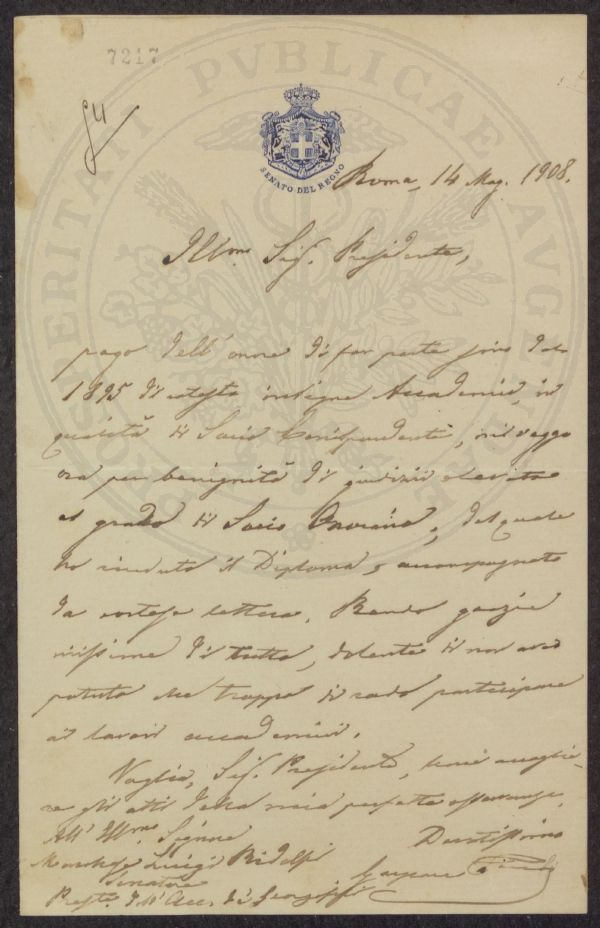 7217
PROSPERITATI PVBLICAE AVGENDAE
SENATO DEL REGNO
Roma, 14 Mag. 1908.
Ill.mo Sig. Presidente,
pago dell'onore di far parte fino dal
1895 di cotesta insigne Accademia, in
qualità di Socio Corrispondente, mi veggo
ora per benignità di giudizio elevato
al grado di Socio Onorario, del quale
ho ricevuto il Diploma, accompagnato
da cortese lettera. Rendo grazie
vivissime di tutto, dolente di non aver
potuto che troppo di rado partecipare
ai lavori accademici.
Voglia, Sig. Presidente, accoglie-
re gli atti della mia perfetta osservanza.
All' Ill.mo Signore
Devotissimo
Marchese Luigi Ridolfi
Senatore
Gaspare
Presid. dell'Acc. dei Georgofili